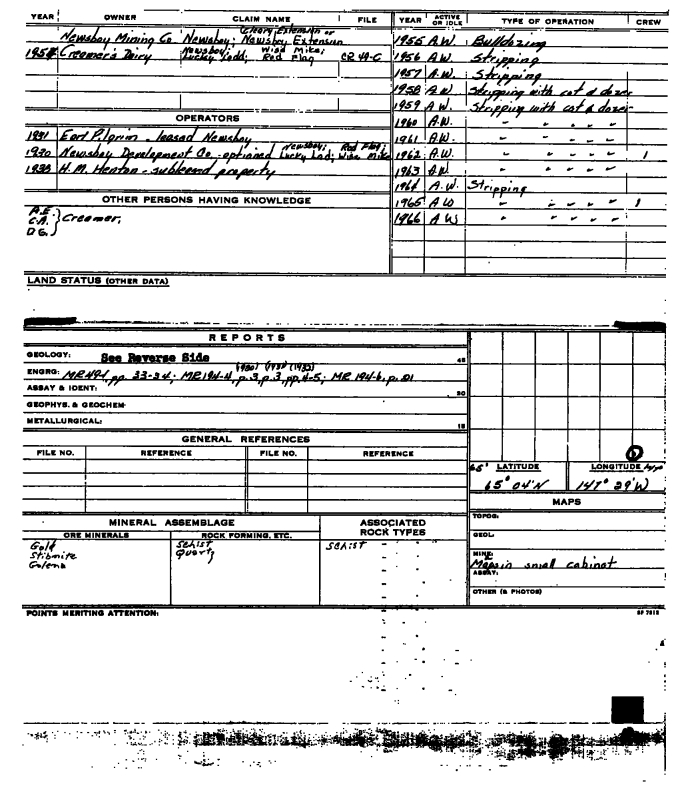 YEAR OWNER CLAIM NAME FILE
Cleary Extension or
Newsboy Mining Co. Newsboy; Newsboy Extension
1954 Creamer's Dairy Newsboy; Lucky Ladd; Wise Mike; Red Flag CR 49-C
OPERATORS
1931 Earl Pilgrim - leased Newsboy
1930 Newsboy Development Co. - optioned Newsboy; Lucky Lad; Red Flag; Wise Mike
1933 H. M. Henton - subleased property
OTHER PERSONS HAVING KNOWLEDGE
A.E.
C.A. } Creamer.
D G.
YEAR ACTIVE OR IDLE TYPE OF OPERATION CREW
1955 A.W. Bulldozing
1956 A.W. Stripping
1957 A.W. Stripping
1958 A.W. Stripping with cat & dozer
1959 A W. Stripping with cat & dozer
1960 A.W. " " " " "
1961 A.W. " " " " "
1962 A.W. " " " " " 1
1963 A.W. " " " " "
1964 A.W. Stripping
1965 A W " " " " " 1
1966 A W " " " " "
LAND STATUS (OTHER DATA)
REPORTS
GEOLOGY: See Reverse Side 45
(1930) (1931) (1933)
ENGRG: MR 49-1, pp. 33-34; MR 194-4, p. 3, p. 3, pp. 4-5; MR 194-6, p. 21
ASSAY & IDENT: 30
GEOPHYS. & GEOCHEM-
METALLURGICAL: 15
GENERAL REFERENCES
FILE NO. REFERENCE FILE NO. REFERENCE
65° LATITUDE LONGITUDE
65° 04'N 147° 29'W
MAPS
TOPOG:
GEOL:
MINE: Maps in small cabinet
ASSAY:
OTHER (& PHOTOS)
MINERAL ASSEMBLAGE
ORE MINERALS ROCK FORMING, ETC.
ASSOCIATED ROCK TYPES
Gold Schist Schist
Stibnite Quartz
Galena
POINTS MERITING ATTENTION: